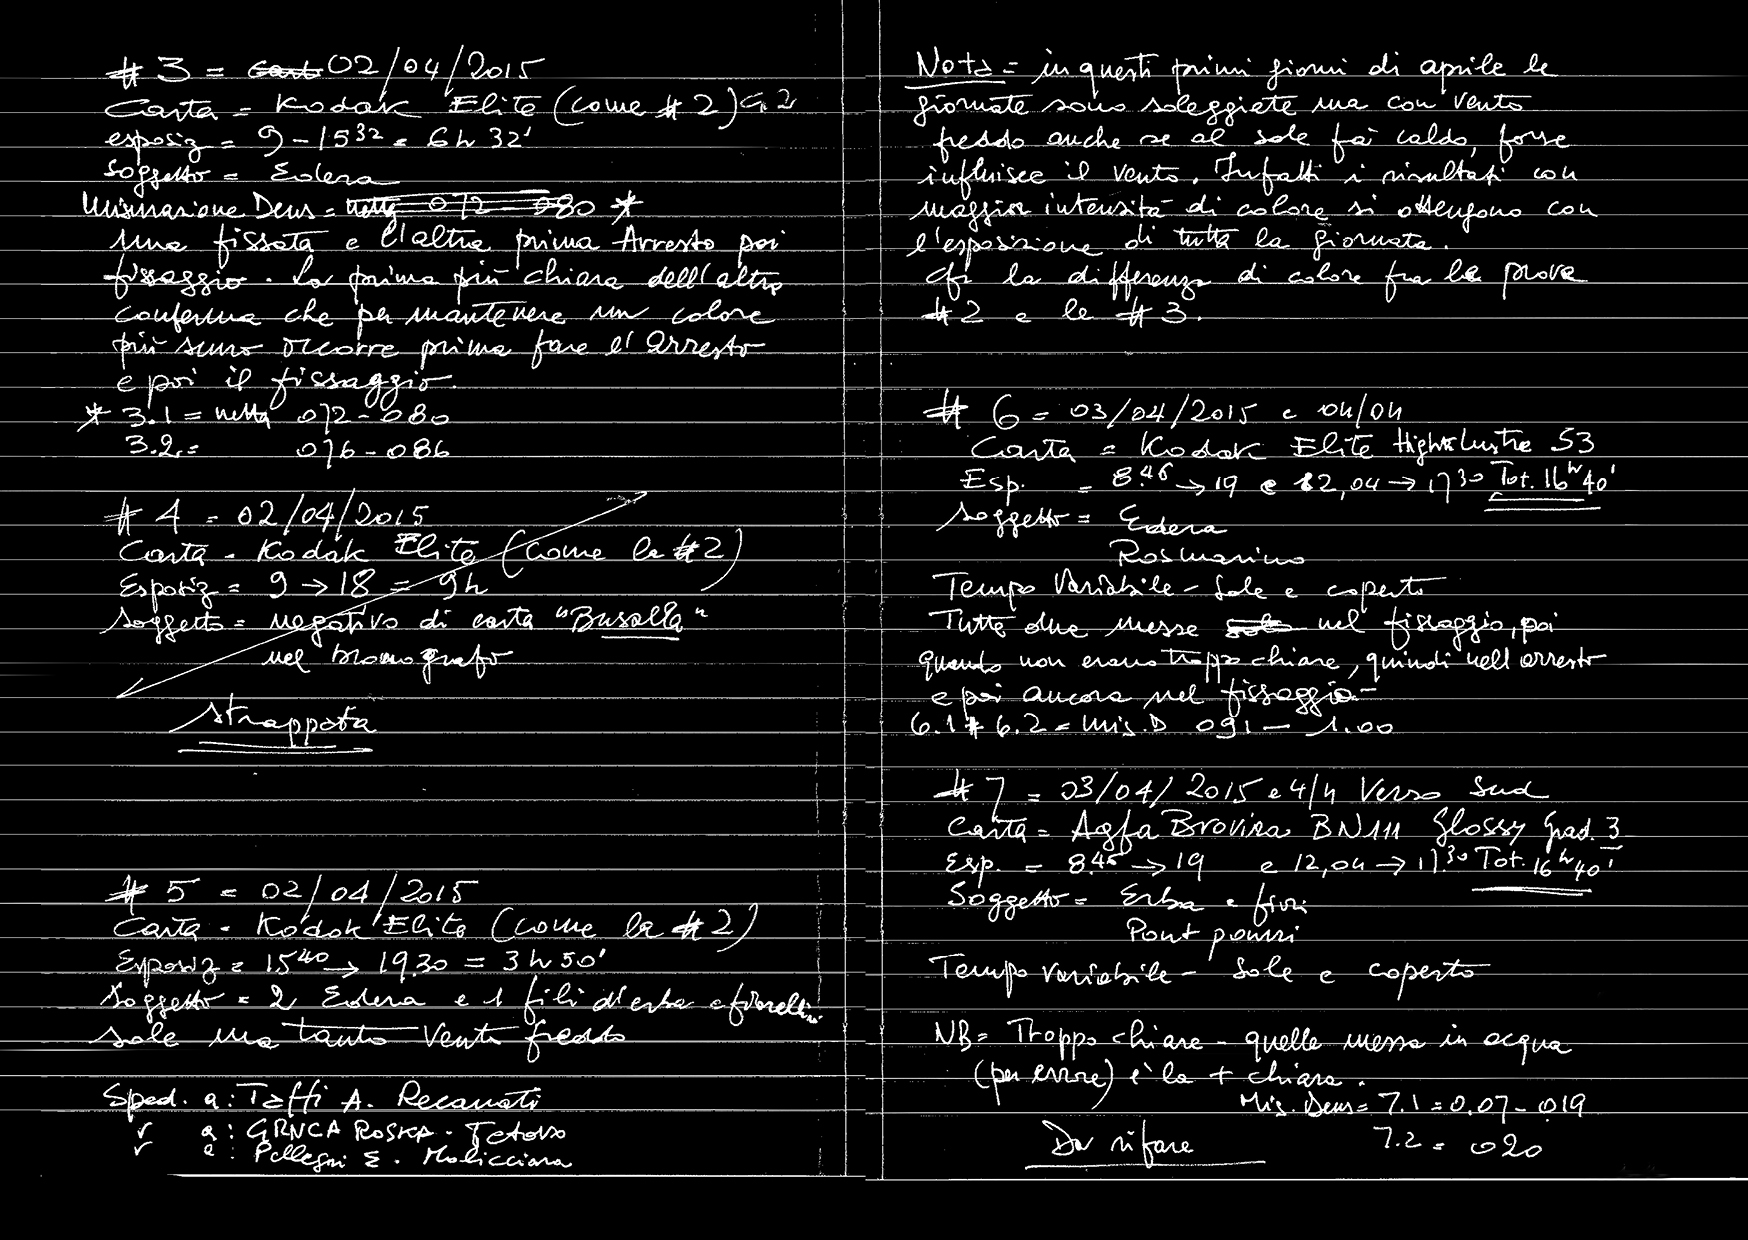 # 3 = 02/04/2015
Carta = Kodak Elite (come # 2) G. 2
esposiz = 9 – 15 32 = 6h 32'
Soggetto = Edera
Misurazione Dens = netta 072 080 *
una fissata e l'altra prima Arresto poi
fissaggio. La prima più chiara dell'altra
conferma che per mantenere un colore
più scuro occorre prima fare l'arresto
e poi il fissaggio.
* 3.1 = netta 072 - 080
3.2 = 076 - 086
# 4 = 02/04/2015
Carta = Kodak Elite (come la # 2)
Esposiz = 9 → 18 = 9h
Soggetto = negativo di carta "Busalla"
nel bromografo
strappata
# 5 = 02/04/2015
Carta = Kodak Elite (come la # 2)
Esposiz = 15 40 → 19.30 = 3h 50'
Soggetto = 2 Edera e 1 fili d'erba e fiorellini
sole ma tanto vento freddo
Sped. a: Taffi A. Recanati
" a: GRNCA ROSKA - Tetovo
" a: Pellegri E. Molicciara
Nota = in questi primi giorni di aprile le
giornate sono soleggiate ma con vento
freddo anche se al sole fà caldo, forse
influisce il vento. Infatti i risultati con
maggior intensità di colore si ottengono con
l'esposizione di tutta la giornata.
cfr la differenza di colore fra le prove
# 2 e le # 3.
# 6 = 03/04/2015 e 04/04
Carta = Kodak Elite High Lustre S3
Esp. = 8.45 → 19 e 12,04 → 17 30 Tot. 16h 40'
Soggetto = Edera
Rosmarino
Tempo Variabile - Sole e coperto
Tutte due messe nel fissaggio, poi
quando non erano troppo chiare, quindi nell'arresto
e poi ancora nel fissaggio -
6.1 + 6.2 = mis. D 091 – 1.00
# 7 = 03/04/2015 e 4/4 Verso Sud
Carta = Agfa Brovira BN111 Glossy Grad. 3
Esp. = 8.45 → 19 e 12,04 → 17.30 Tot. 16h 40'
Soggetto = Erba e fiori
Pout pourri
Tempo variabile - Sole e coperto
NB = Troppo chiare - quelle messa in acqua
(per errore) è la + chiara.
Mis. Dens = 7.1 = 0.07 - 019
7.2 = 020
Da rifare